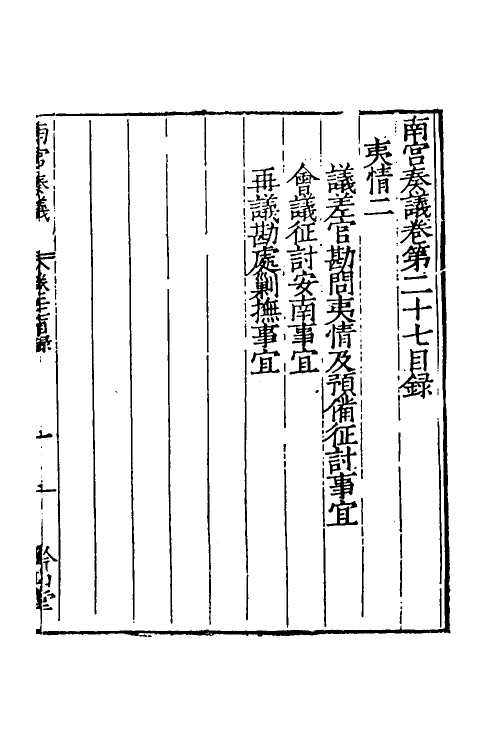 南宮奏議卷第二十七目録
夷情二
議差官勘問夷情及預備征討事宜
會議征討安南事宜
再議勘處剿撫事宜
南宮奏議
一
鈐山堂